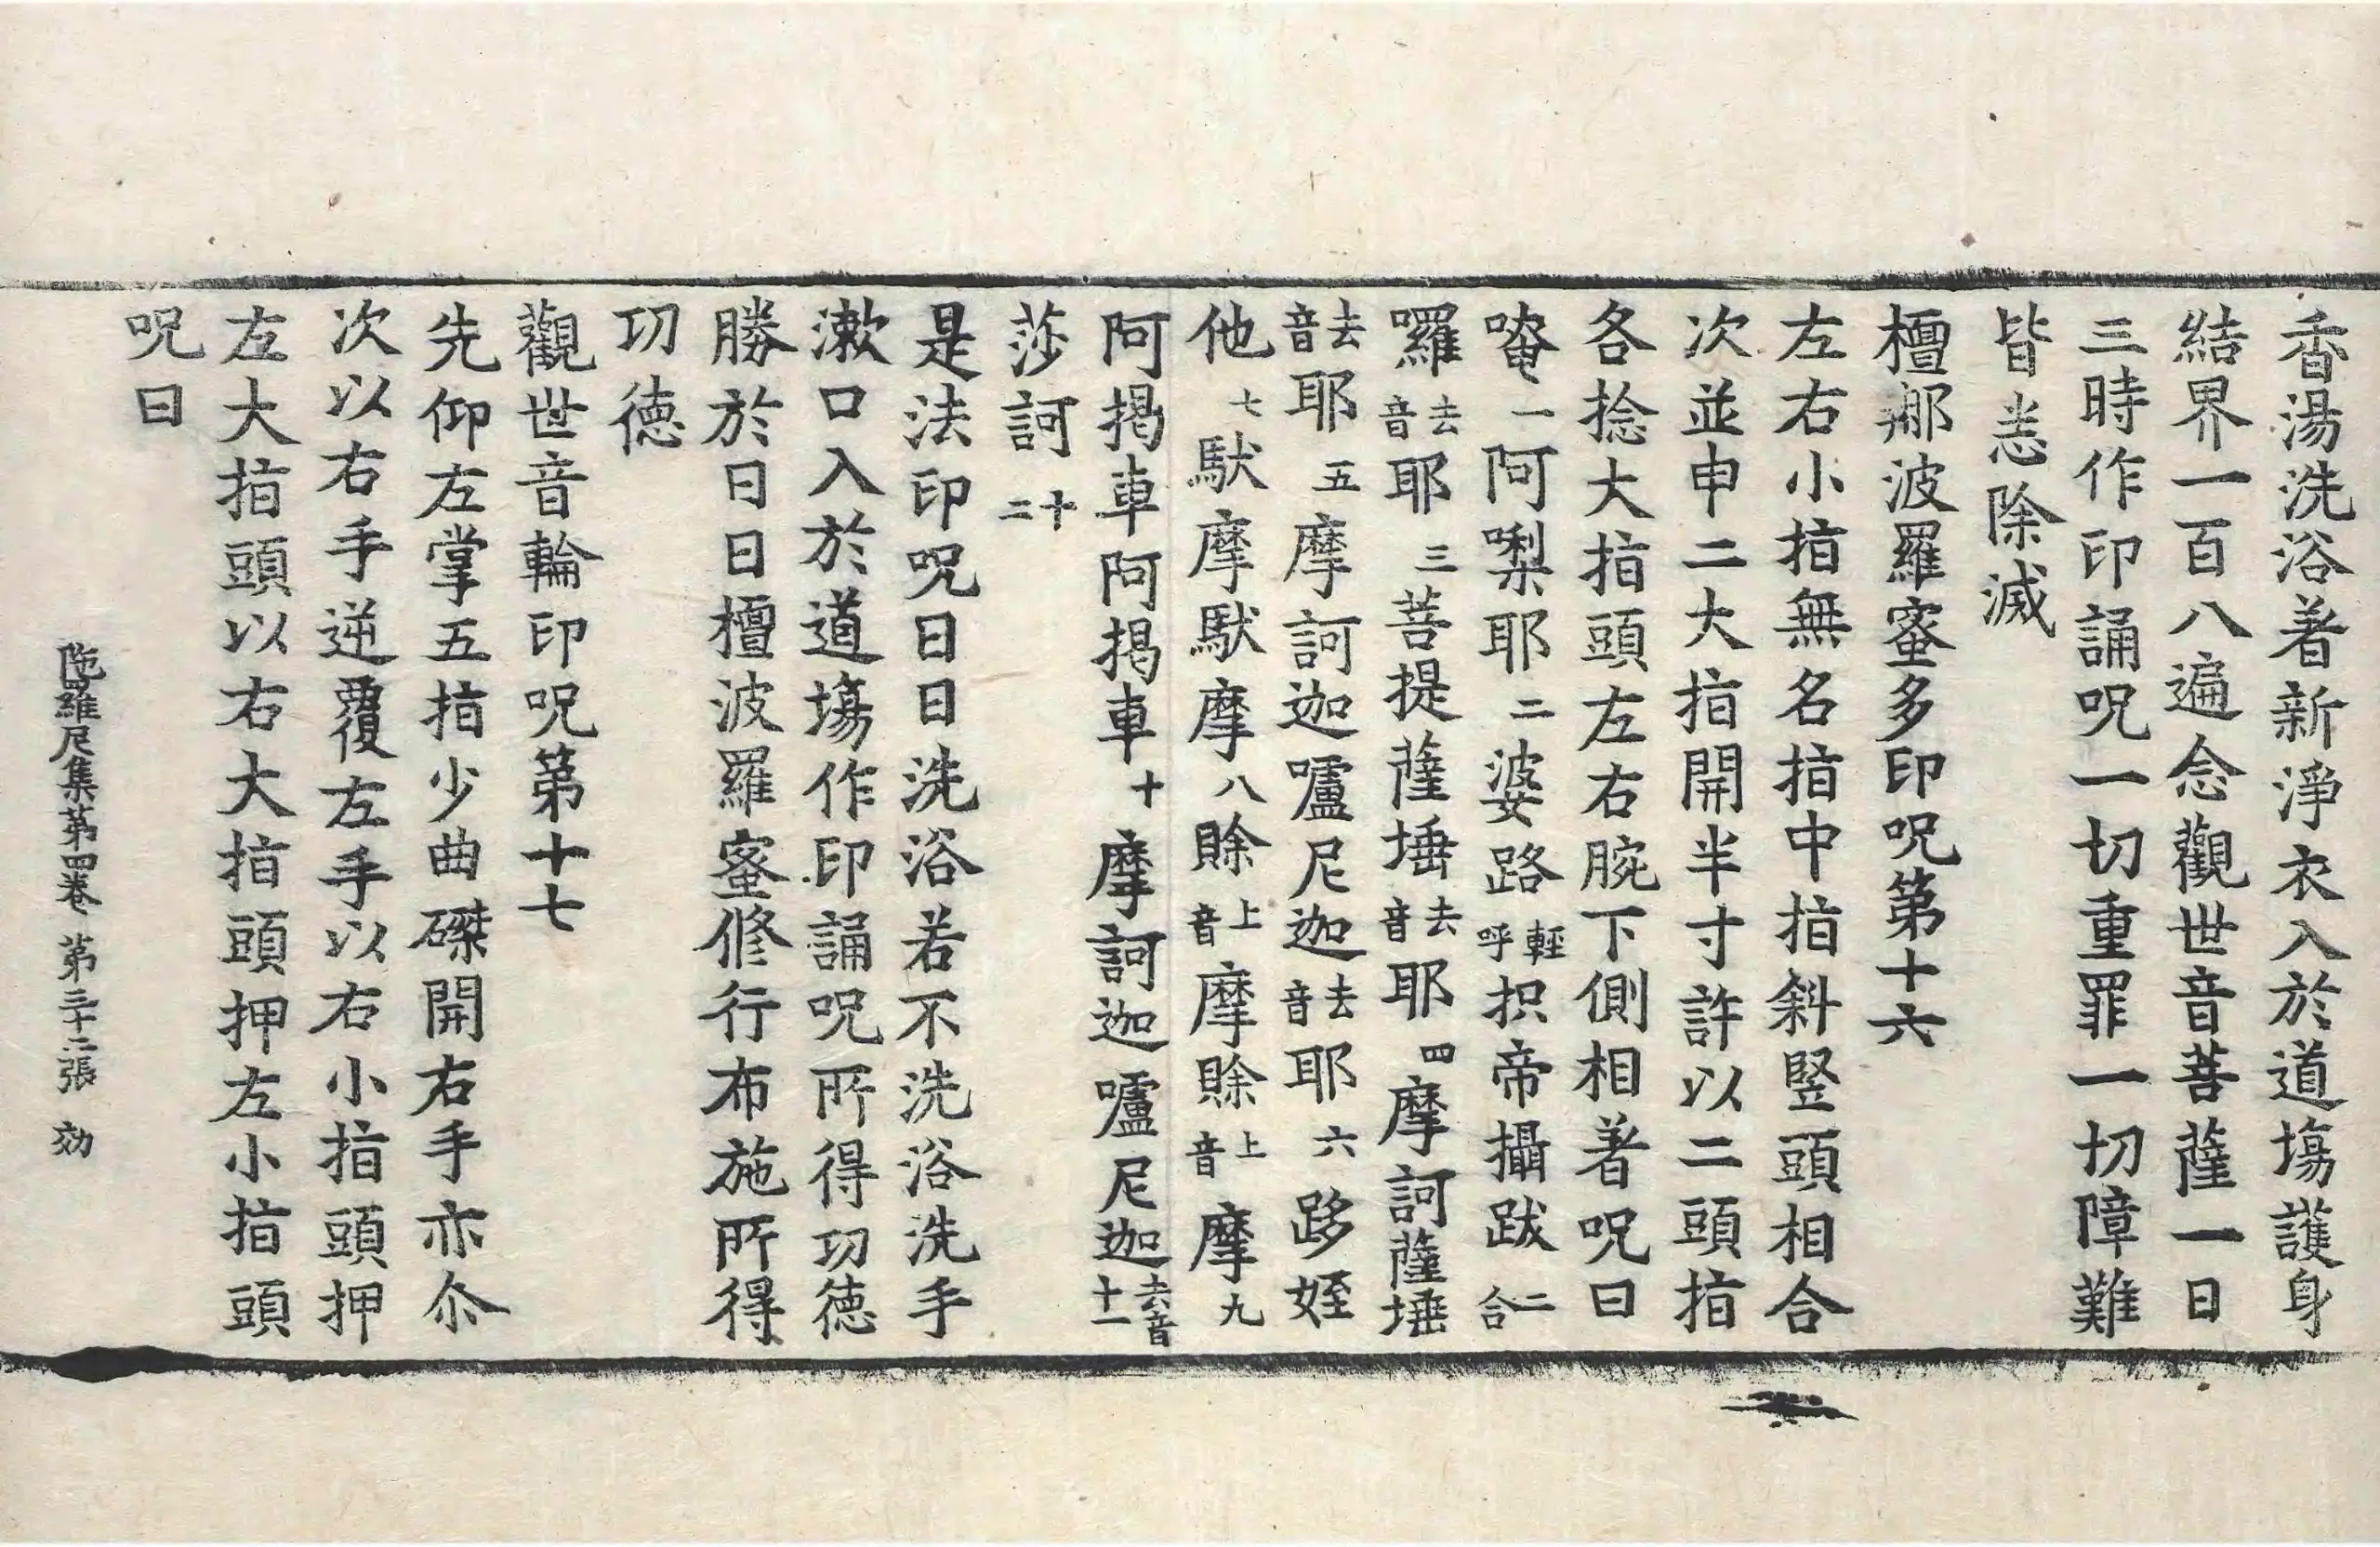 香湯洗浴著新淨衣入於道塲護身
結界一百八遍念觀世音菩薩一日
三時作印誦呪一切重罪一切障難
皆悉除滅
檀那波羅蜜多印呪第十六
左右小指無名指中指斜竪頭相合
次並申二大指開半寸許以二頭指
各捻大指頭左右腕下側相著呪曰
唵一阿唎耶二婆路輕呼抧帝攝跋二合
囉去音耶三菩提薩埵去音耶四摩訶薩埵
去音耶五摩訶迦嚧尼迦去音耶六跢姪
他七馱摩馱摩八賖上音摩賖上音摩九
阿揭車阿揭車十摩訶迦嚧尼迦去音十一
莎訶十二
是法印呪日日洗浴若不洗浴洗手
漱口入於道塲作印誦呪所得功德
勝於日日檀波羅蜜修行布施所得
功德
觀世音輪印呪第十七
先仰左掌五指少曲磔開右手亦尒
次以右手逆覆左手以右小指頭押
左大指頭以右大指頭押左小指頭
呪曰
陁羅尼集第四卷 第三十二張 効